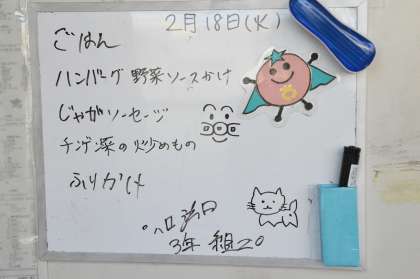 2月18日(火)
ごはん
ハンバーグ 野菜ソースかけ
じゃがソーセージ
チンゲン菜の炒めもの
ふりかけ
3年 組20